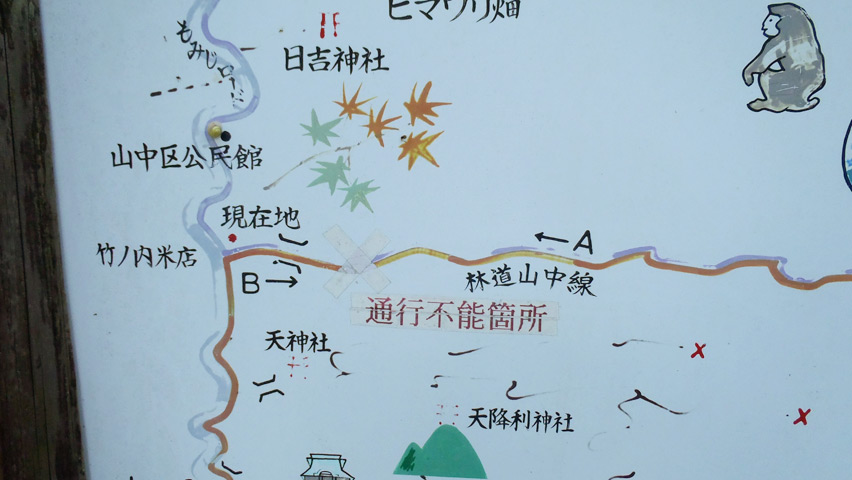 ヒマワリ畑
もみじロード
日吉神社
山中区公民館
現在地
竹ノ内米店
←A
B→
林道山中線
通行不能箇所
天神社
天降利神社